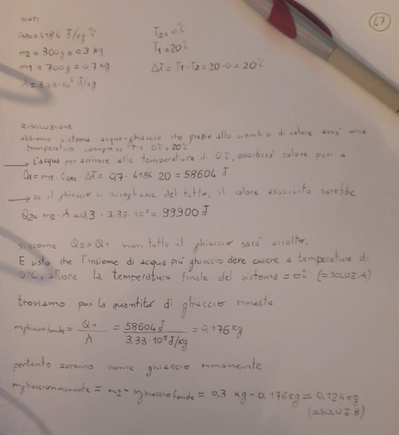 47
DATI
cH2O = 4186 J/kg °C
m2 = 300g = 0.3 kg
m1 = 700g = 0.7 kg
λ = 3.33·10⁵ J/kg
T2 = 0°C
T1 = 20°C
ΔT = T1-T2 = 20-0 = 20°C
RISOLUZIONE
abbiamo sistema acqua-ghiaccio che grazie allo scambio di calore avrà una
temperatura compresa tra 0°C e 20°C
→ l'acqua per arrivare alla temperatura di 0°C, calore pari a
Q1 = m1·cH2O ΔT = 0,7·4186 20 = 58604 J
→ se il ghiaccio si sciogliesse del tutto, il calore assorbito sarebbe
Q2 = m2·λ = 0,3·3,33·10⁵ = 99900 J
siccome Q2 > Q1 non tutto il ghiaccio sarà sciolto.
E visto che l'insieme di acqua più ghiaccio deve essere a temperatura di
0°C, allora la temperatura finale del sistema = 0°C (= SOLUZ. A)
troviamo poi la quantità di ghiaccio rimasta
mghiaccio fonde = Q1/λ = 58604 J / 3,33·10⁵ J/kg = 0,176 kg
pertanto avremo come ghiaccio rimanente
mghiaccio rimanente = m2 - mghiaccio fonde = 0,3 kg - 0,176 kg = 0,124 kg
(= SOLUZ B)